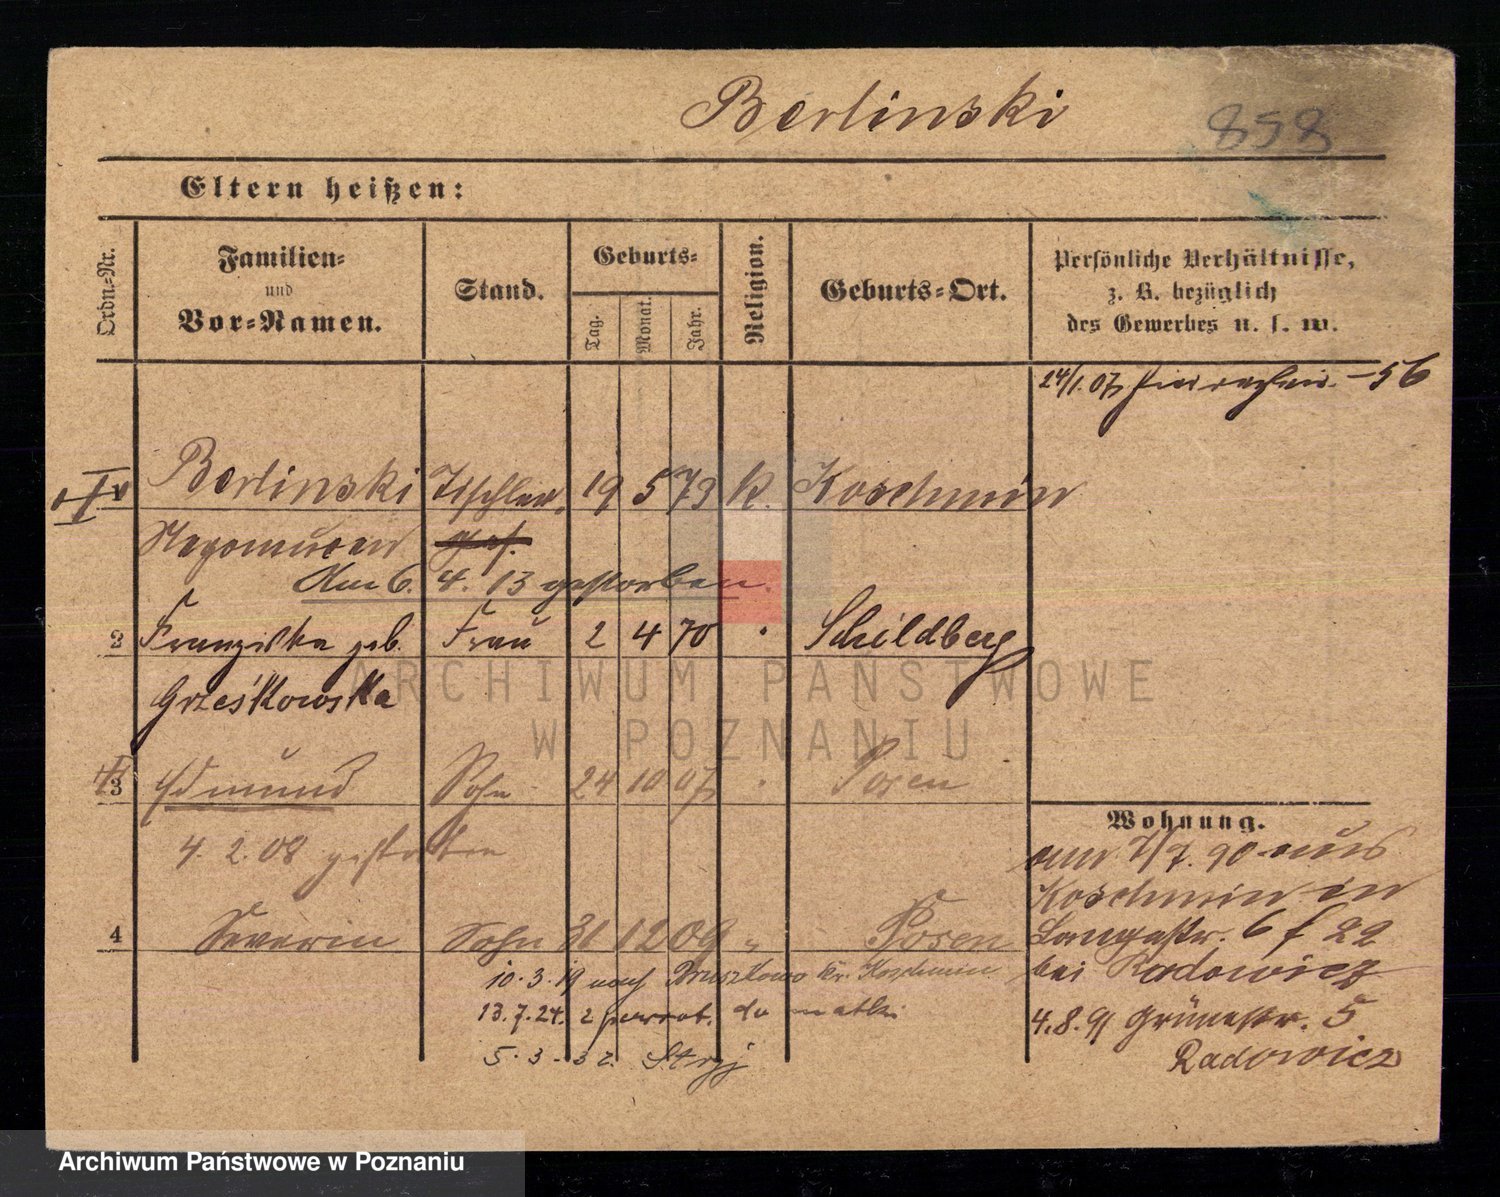 Berlinski
858
Eltern heißen:
Ordn.-Nr.
Familien-
und
Vor-Namen.
Stand.
Geburts-
Tag.
Monat.
Jahr.
Religion.
Geburts-Ort.
Persönliche Verhältnisse,
z. B. bezüglich
des Gewerbes u. s. w.
24/1. 07 56
Berlinski Tischler. 19 5 73 k. Koschmin
Nepomucen
Am 6. 4. 13 gestorben.
2 Franziska geb. Frau 2 4 70 " Schildberg
Grześkowska
3 Edmund Sohn 24 10 07 " Posen
4. 2. 08 gestorben
4 Severin Sohn 31 12 09 " Posen
10.3.19 nach Kr. Koschmin
13.7.24. z powrot. do matki
5.3.32. Stryj
Wohnung.
am 7/7. 90 aus
Koschmin in
Langestr. 6 f 22
bei Radowicz
4.8.91 Grünestr. 5
Radowicz
ARCHIWUM PAŃSTWOWE
W POZNANIU
Archiwum Państwowe w Poznaniu